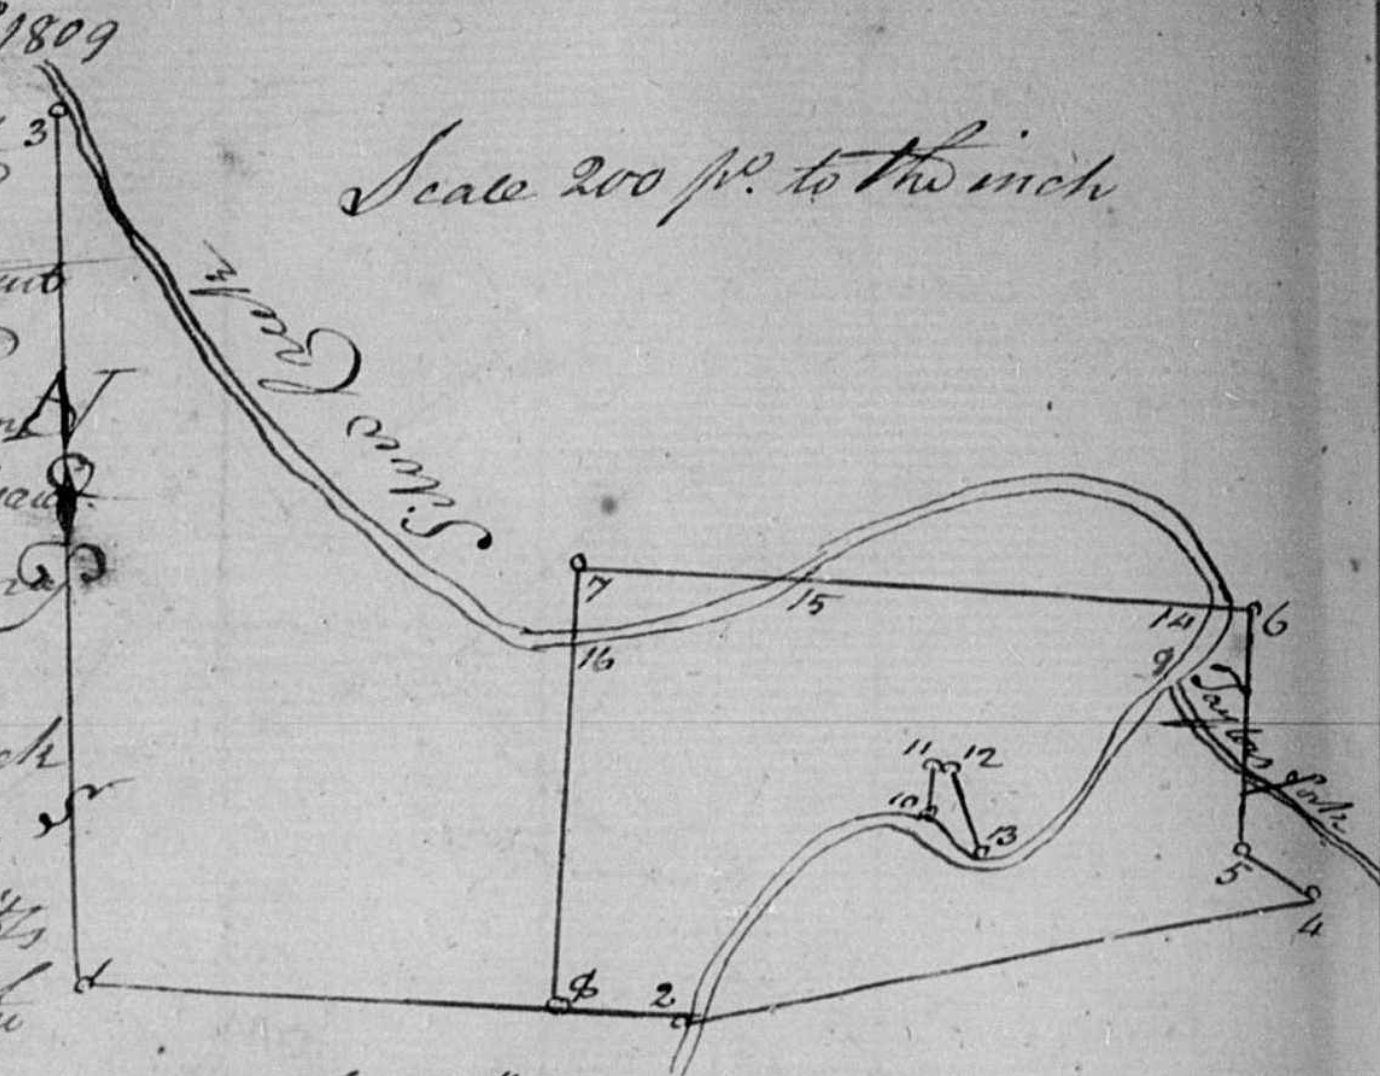 1809
3
Scale 200 po. to the inch
Silver Creek
N
7
15
14
6
16
9
Taylors Fork
11
12
10
13
5
4
ck
1
8
2